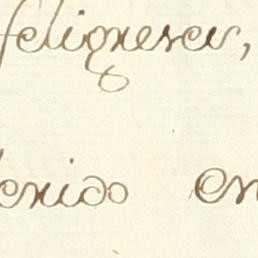 feligreses,
tenido en